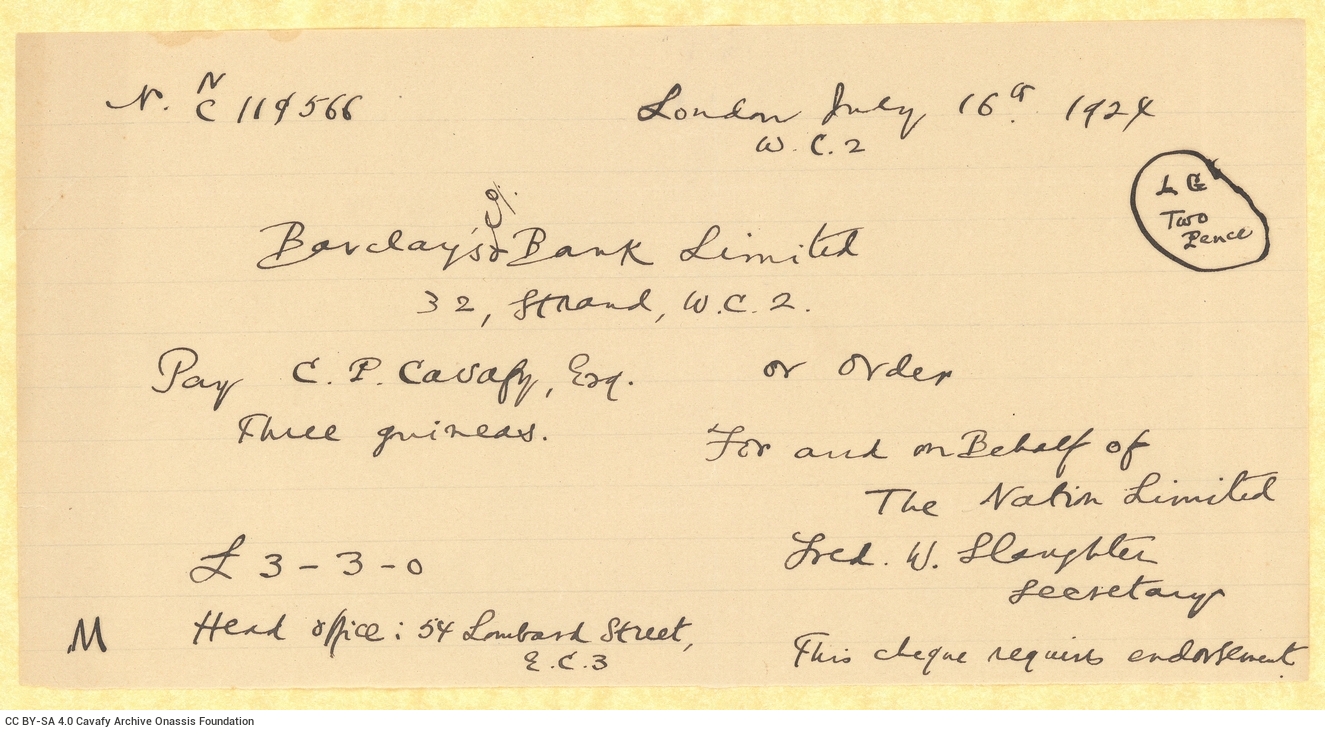 N. N
C 119566
London July 16th 1924
W.C.2
L G
Two
Pence
Barclay's Bank Limited
32, Strand, W.C.2.
Pay C. P. Cavafy, Esq. or Order
Three guineas.
For and on Behalf of
The Nation Limited
£ 3-3-0
Fred. W. Slaughter
Secretary
M
Head office: 54 Lombard Street,
E.C.3
This cheque requires endorsement.
CC BY-SA 4.0 Cavafy Archive Onassis Foundation